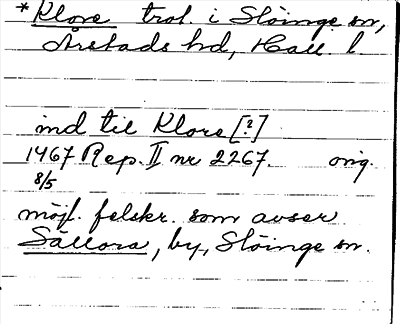 *Klora trol. i Slöinge sn,
Årstads hd, Hall. l
ind til Klora [?]
1467 Rep. II nr 2267. orig.
8/5
möjl. felskr. som avser
Sällora, by, Slöinge sn.